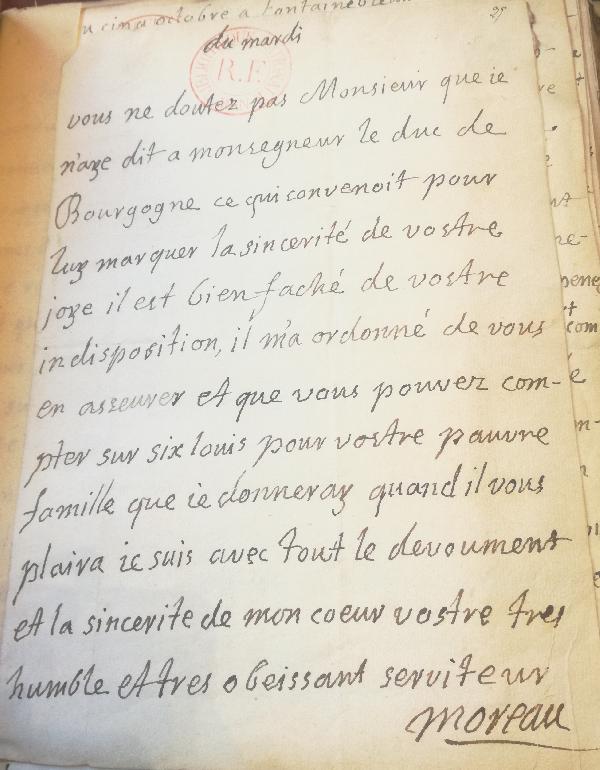 cinq octobre a fontainebleau
du mardi
25
R.F
vous ne doutez pas Monsieur que ie
n'aye dit a monsegneur le duc de
Bourgogne ce qui convenoit pour
luy marquer la sincerité de vostre
joye il est bien faché de vostre
indisposition, il m'a ordonné de vous
en asseurer et que vous pouvez com-
pter sur six louis pour vostre pauvre
famille que ie donneray quand il vous
plaira ie suis avec tout le devoument
et la sincerite de mon coeur vostre tres
humble et tres obeissant serviteur
moreau